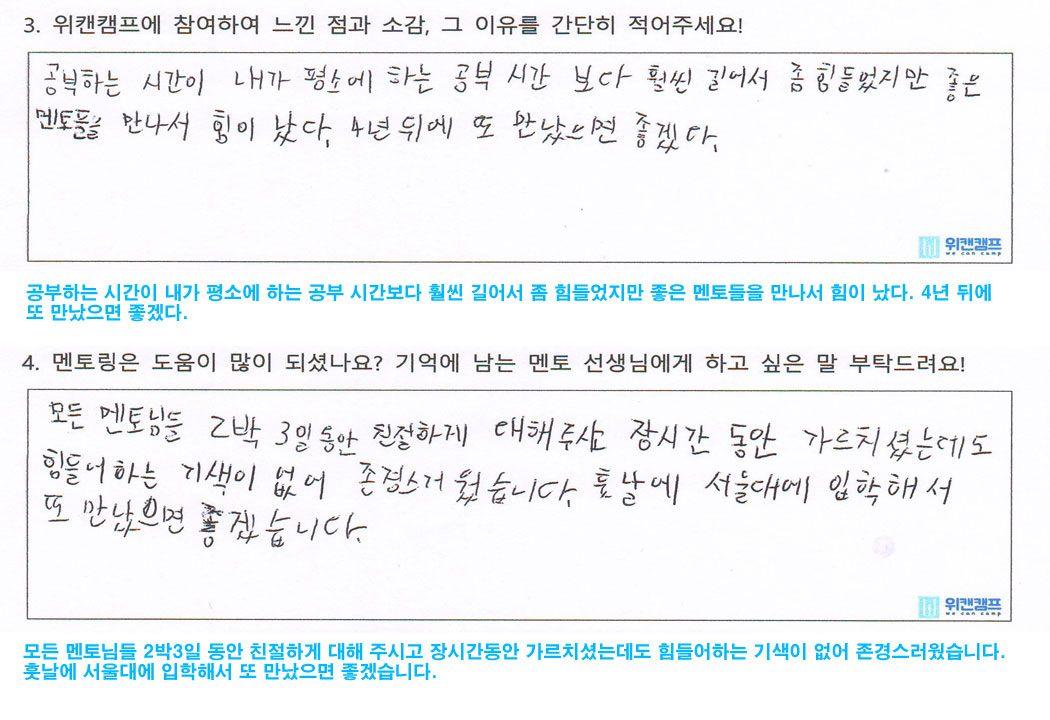 3. 위캔캠프에 참여하여 느낀 점과 소감, 그 이유를 간단히 적어주세요!
공부하는 시간이 내가 평소에 하는 공부 시간 보다 훨씬 길어서 좀 힘들었지만 좋은
멘토들을 만나서 힘이 났다. 4년 뒤에 또 만났으면 좋겠다.
위캔캠프
we can camp
공부하는 시간이 내가 평소에 하는 공부 시간보다 훨씬 길어서 좀 힘들었지만 좋은 멘토들을 만나서 힘이 났다. 4년 뒤에
또 만났으면 좋겠다.
4. 멘토링은 도움이 많이 되셨나요? 기억에 남는 멘토 선생님에게 하고 싶은 말 부탁드려요!
모든 멘토님들 2박 3일 동안 친절하게 대해주심 장시간 동안 가르치셨는데도
힘들어하는 기색이 없어 존경스러웠습니다. 훗날에 서울대에 입학해서
또 만났으면 좋겠습니다.
위캔캠프
we can camp
모든 멘토님들 2박3일 동안 친절하게 대해 주시고 장시간동안 가르치셨는데도 힘들어하는 기색이 없어 존경스러웠습니다.
훗날에 서울대에 입학해서 또 만났으면 좋겠습니다.